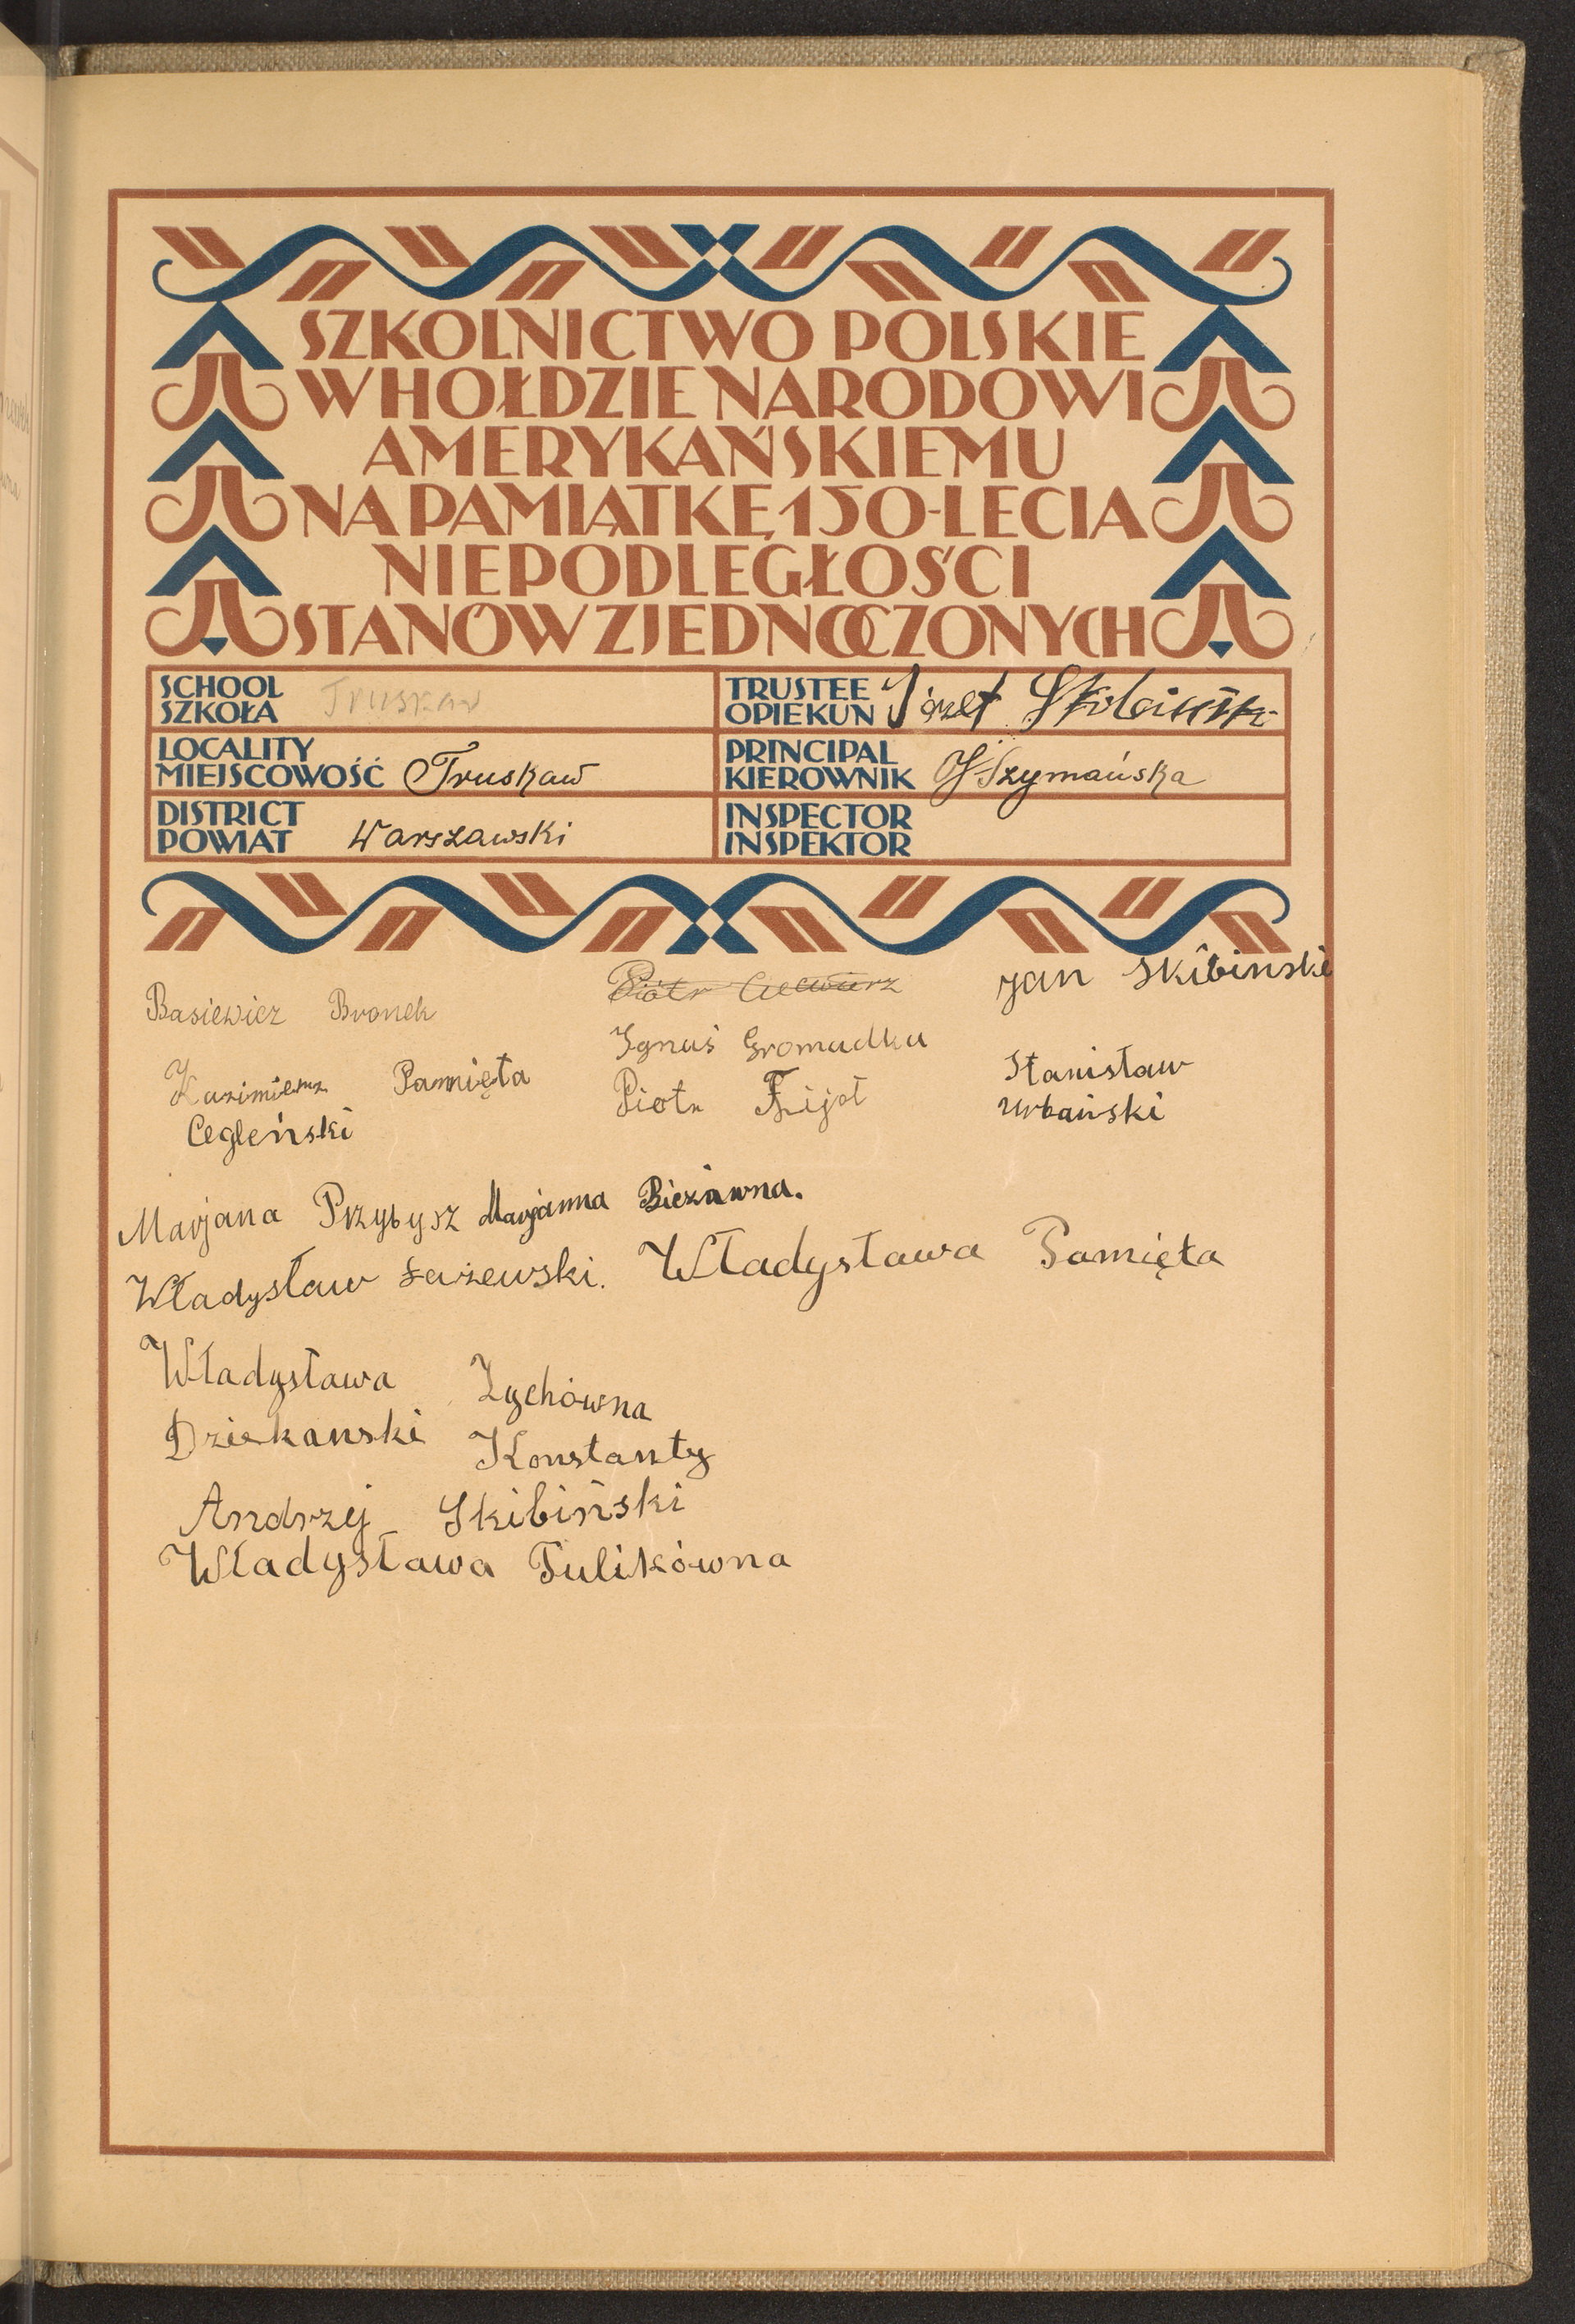 SZKOLNICTWO POLSKIE
W HOŁDZIE NARODOWI
AMERYKAŃSKIEMU
NA PAMIĄTKĘ 150-LECIA
NIEPODLEGŁOŚCI
STANÓW ZJEDNOCZONYCH
SCHOOL
SZKOŁA Truskaw
TRUSTEE
OPIEKUN Józef
LOCALITY
MIEJSCOWOŚĆ Truskaw
PRINCIPAL
KIEROWNIK Szymańska
DISTRICT
POWIAT Warszawski
INSPECTOR
INSPEKTOR
Basiewicz Bronek
Piotr
Jan Skibinski
Ignaś Gromadka
Kazimierz Pamięta
Piotr Fijoł
Stanisław
Urbański
Cegleński
Marjana Przybysz Marjanna Bieżawna.
Władysław Łażewski. Władysława Pamięta
Władysława Zychówna
Dziekanski Konstanty
Andrzej Skibiński
Władysława Tulikówna